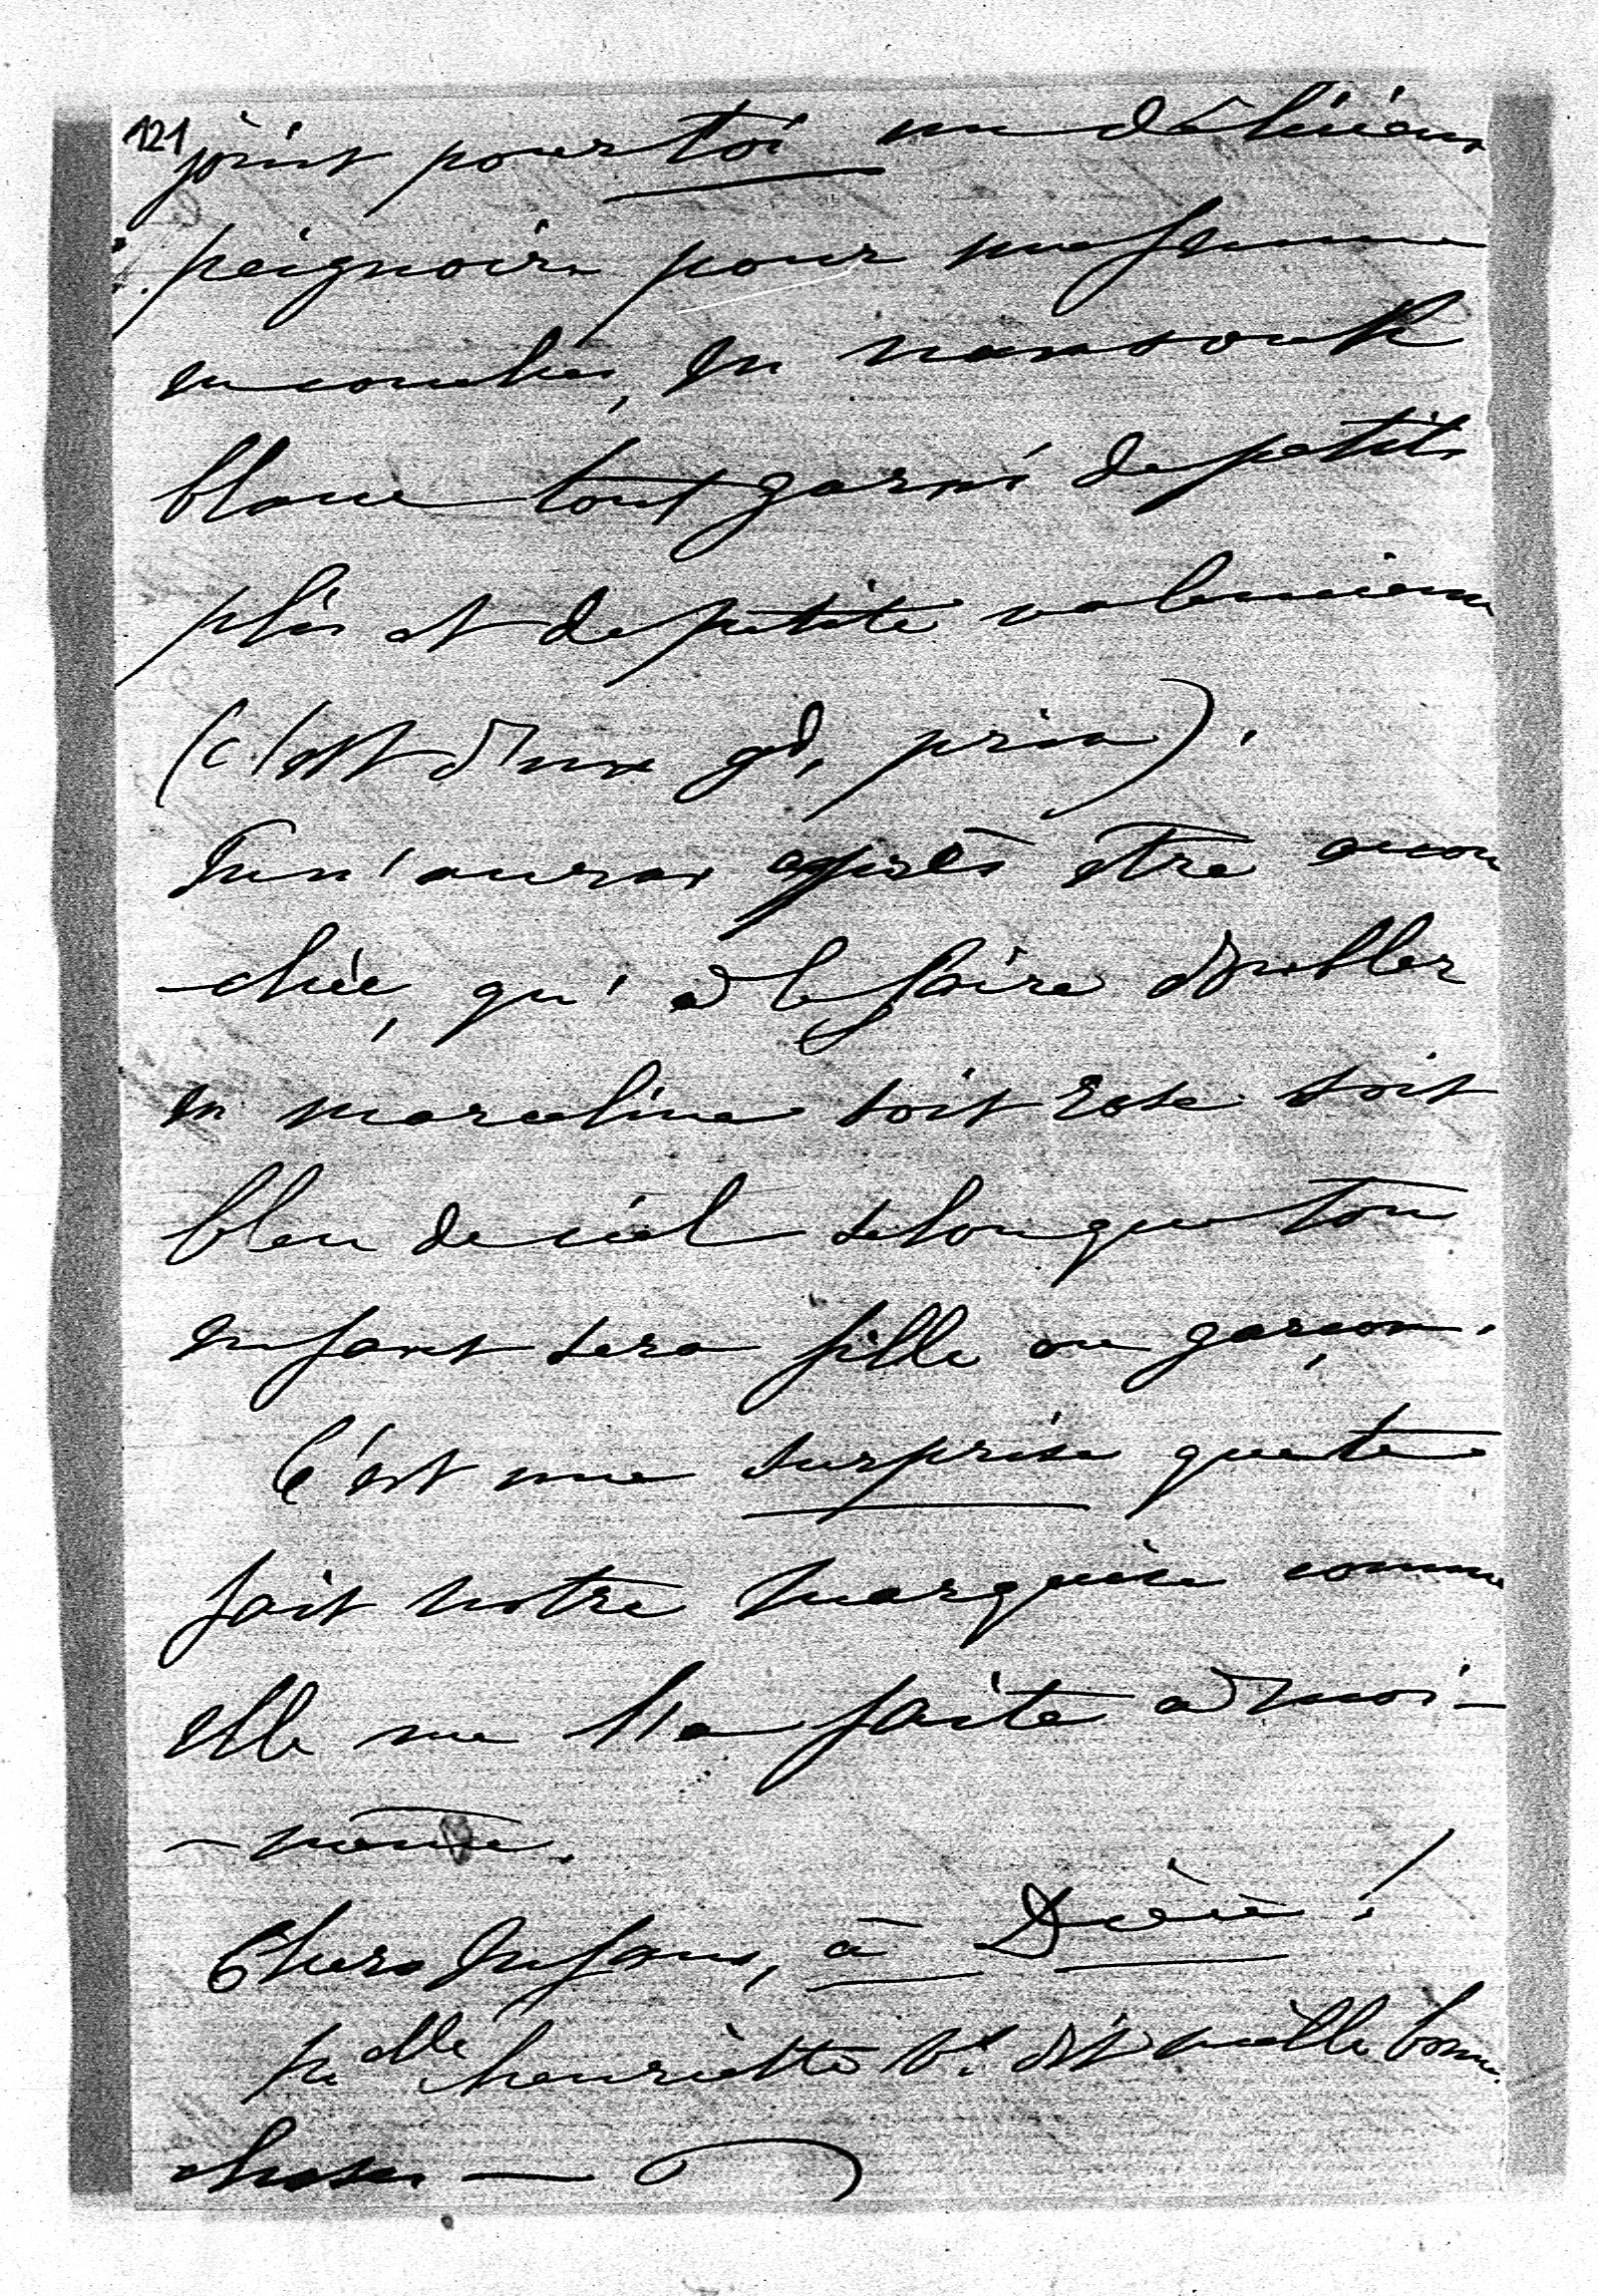 121
joint pour toi un délicieux
peignoir pour une femme
en couches, en nansouk
blanc tout garni de petits
plis et de petite valencienne
(c'est d'un gd. prix).
Tu n'auras après être accou
-chée, qu'à le faire doubler
en marceline soit rose soit
bleu de ciel selon que ton
enfant sera fille ou garçon.
C'est une surprise que te
fait notre marquise comme
elle me l'a faite à moi-
-même.
Chers Enfans, à Dieu !
Melle henriette Vs dit mille bonnes
choses —